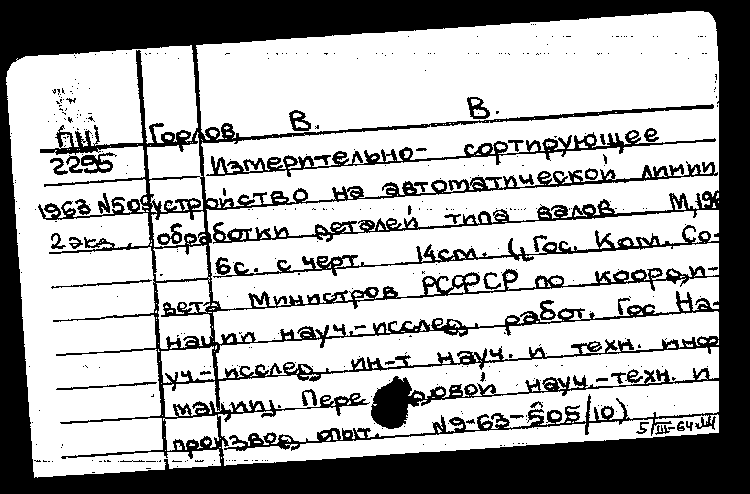 ПШ Горлов, В. В.
2295 Измерительно- сортирующее
1963 N505 устройство на автоматической линии
2 экз. обработки деталей типа валов М, 196
6с. с черт. 14см. (Гос. Ком. Со-
вета Министров РСФСР по коорди-
нации науч.-исслед. работ. Гос На-
уч.-исслед. ин-т науч. и техн. инфо
мации). Пере довой науч.-техн. и
производ. опыт. N9-63-505/10)
5/III-64